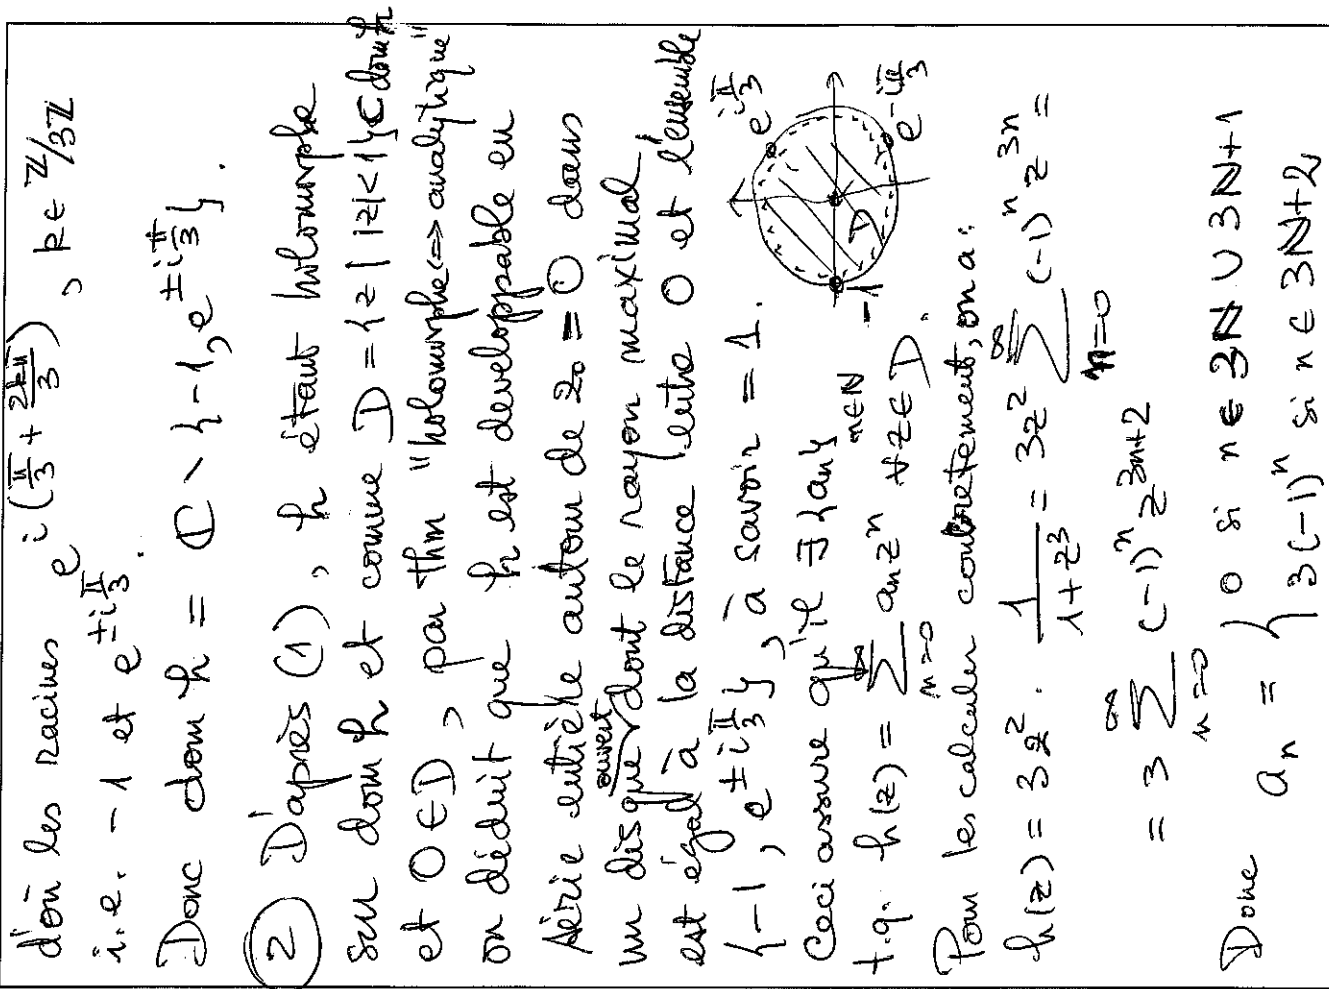 d'où les racines e^{i(π/3 + 2kπ/3)}, k∈ℤ/3ℤ
i.e. -1 et e^{±iπ/3}.
Donc dom h = ℂ \ {-1, e^{±iπ/3}}.
② D'après (1), h étant holomorphe
sur dom h et comme D = {z | |z|<1} ⊂ dom h
et 0∈D, par thm "holomorphe <=> analytique"
on déduit que h est developpable en
série entière autour de z₀ = 0 dans
un disque ouvert dont le rayon maximal
est égal à la distance entre 0 et l'ensemble
{-1, e^{±iπ/3}}, à savoir = 1.
Ceci assure qu'il ∃ {an}_{n∈N}
t.q. h(z) = ∑_{n=0}^{∞} an zⁿ ∀z∈D.
e^{iπ/3}
-1
D
e^{-iπ/3}
Pour les calculer concretement, on a:
h(z) = 3z² · 1/(1+z³) = 3z² ∑_{n=0}^{∞} (-1)ⁿ z^{3n} =
= 3 ∑_{n=0}^{∞} (-1)ⁿ z^{3n+2}
Donc a_n = { 0 si n∈3ℕ ∪ 3ℕ+1
3(-1)ⁿ si n∈3ℕ+2